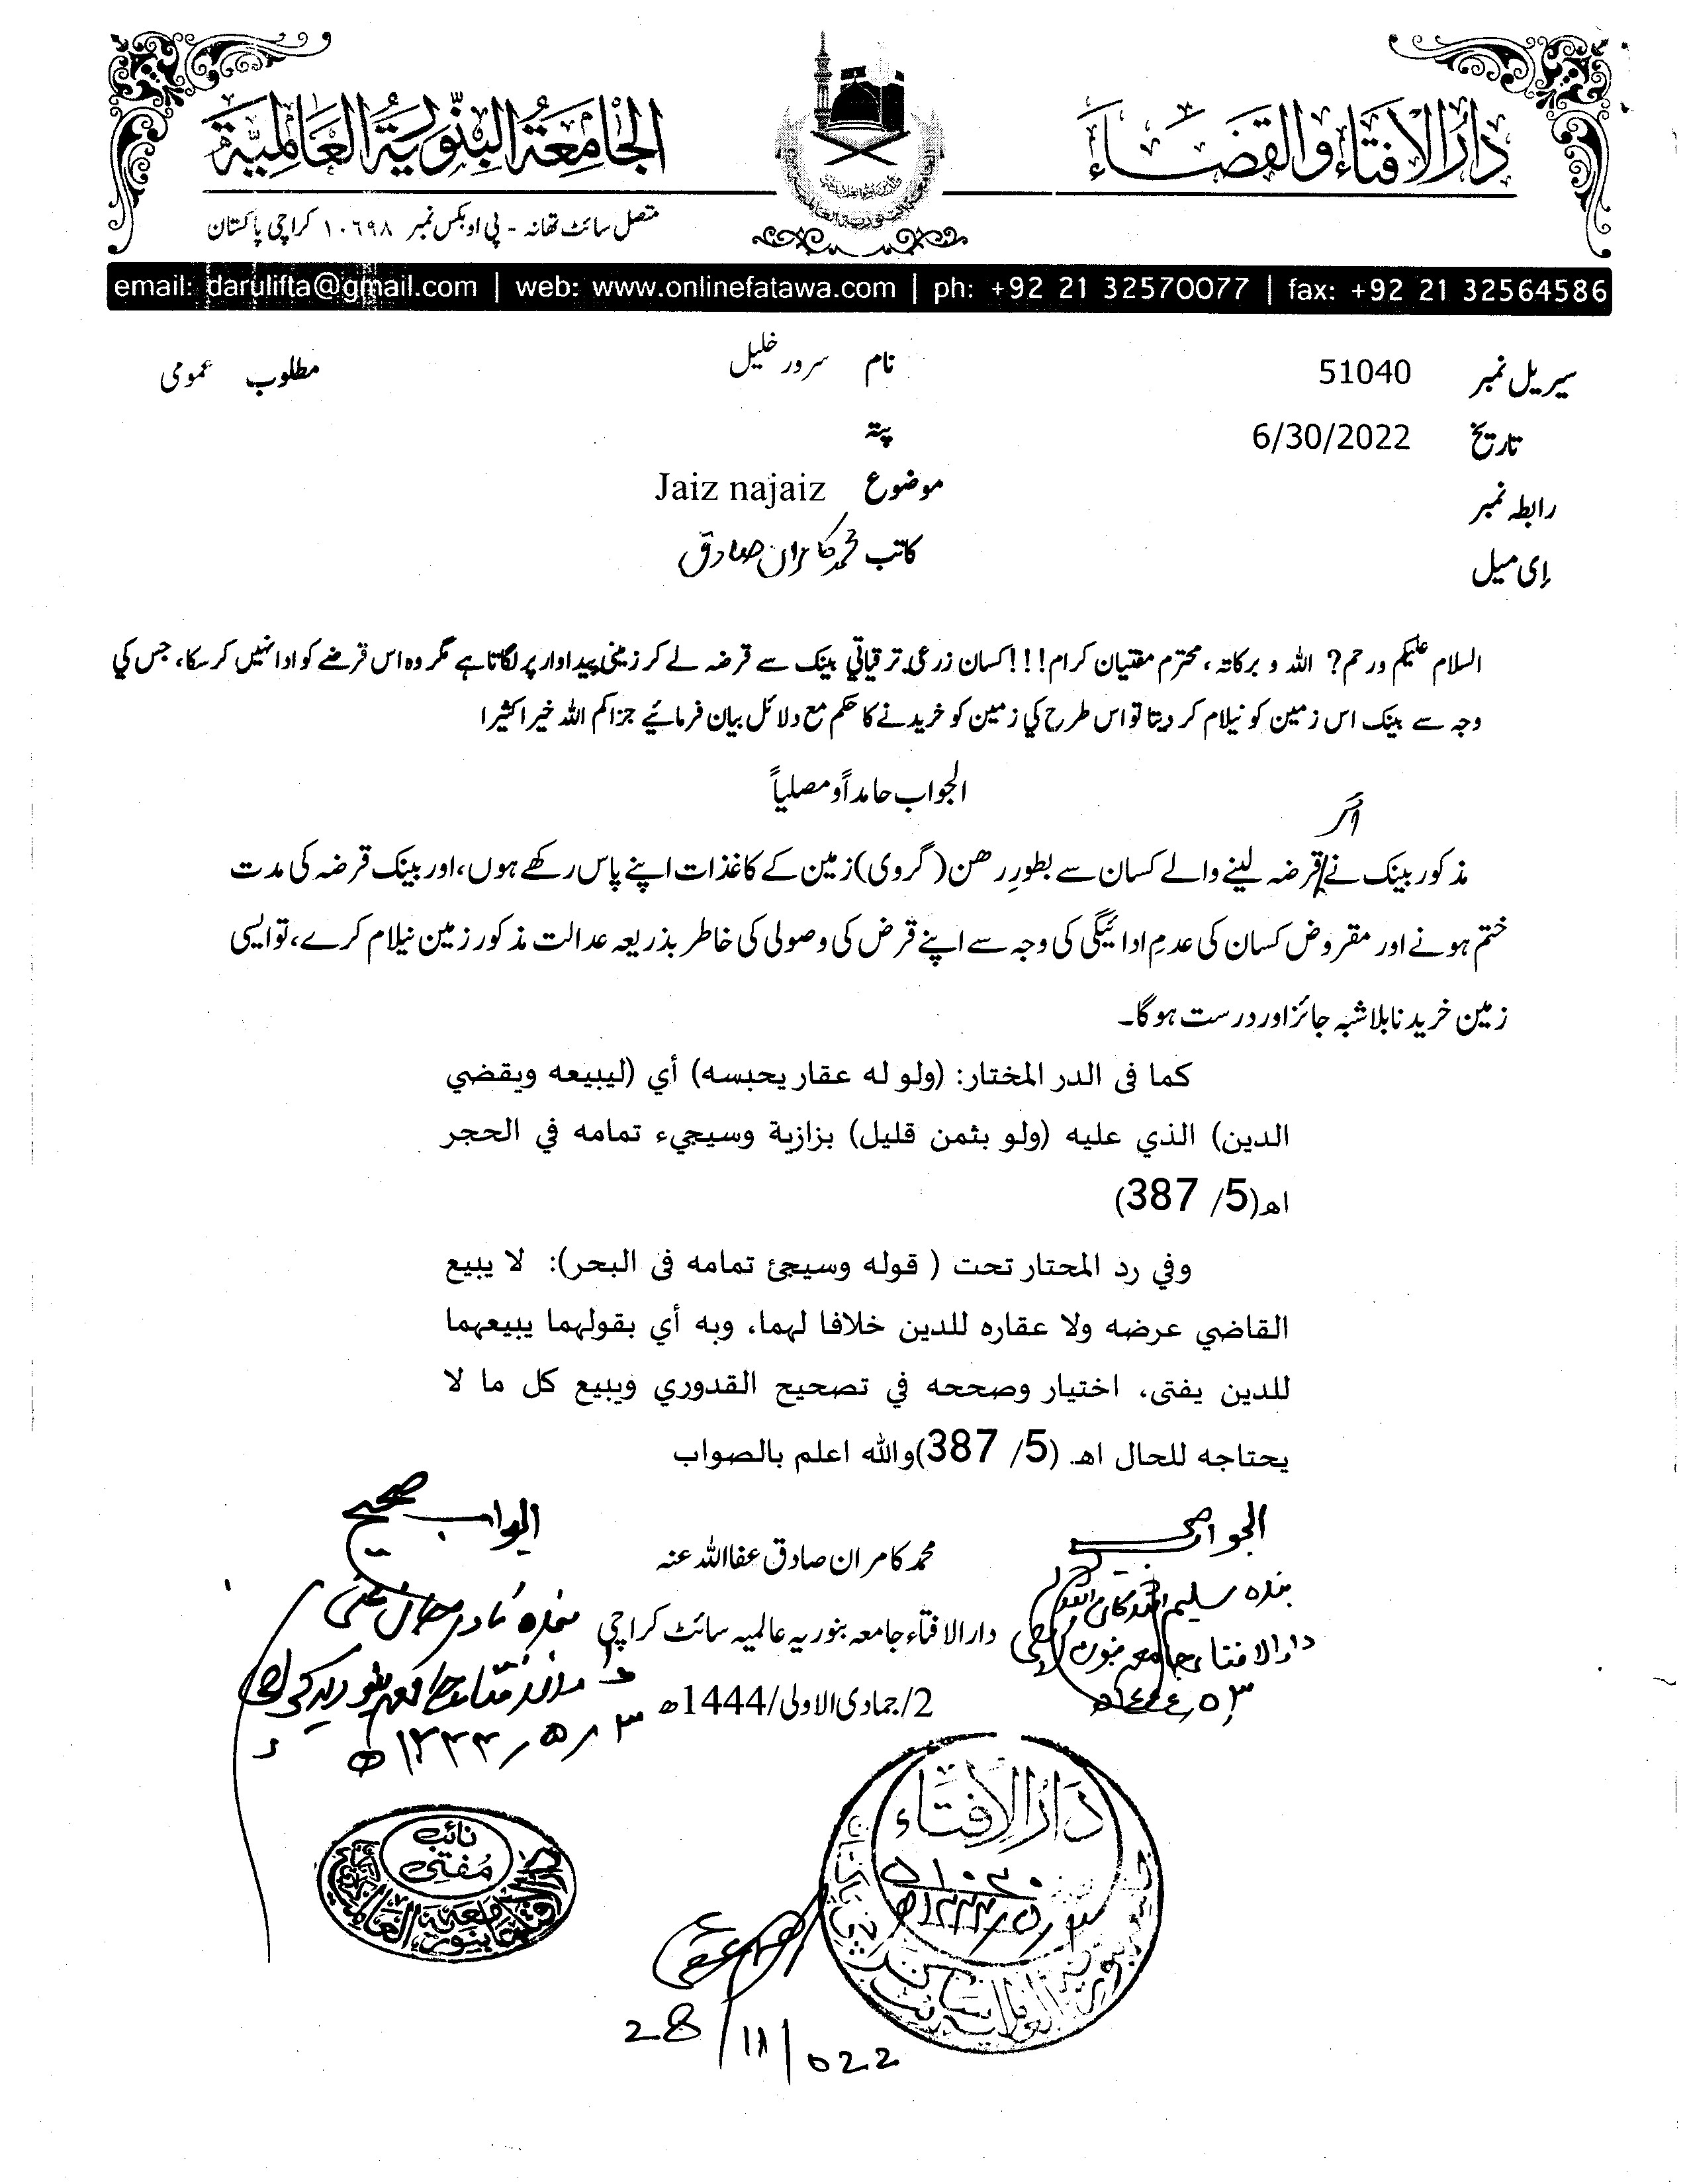 دارُ الافتاء والقضاء
الجامعة البنّورية العالمية
متصل سائٹ تھانہ - پی او بکس نمبر ۱۰۶۹۸ کراچی پاکستان
email: darulifta@gmail.com | web: www.onlinefatawa.com | ph: +92 21 32570077 | fax: +92 21 32564586
سیریل نمبر 51040 نام سرور خلیل مطلوب عمومی
تاریخ 6/30/2022 پتہ
رابطہ نمبر موضوع Jaiz najaiz
ای میل کاتب محمد کامران صادق
السلام علیکم ورحم? اللہ و برکاتہ، محترم مفتیان کرام!!! کسان زرعی ترقیاتی بینک سے قرضہ لے کر زمینی پیداوار پر لگاتا ہے مگر وہ اس قرضے کو ادا نہیں کر سکا، جس کی
وجہ سے بینک اس زمین کو نیلام کر دیتا تو اس طرح کی زمین کو خریدنے کا حکم مع دلائل بیان فرمائیے جزاکم اللہ خیرا کثیرا
الجواب حامداً ومصلیاً
اگر
مذکور بینک نے قرضہ لینے والے کسان سے بطورِ رھن (گروی) زمین کے کاغذات اپنے پاس رکھے ہوں، اور بینک قرضہ کی مدت
ختم ہونے اور مقروض کسان کی عدمِ ادائیگی کی وجہ سے اپنے قرض کی وصولی کی خاطر بذریعہ عدالت مذکور زمین نیلام کرے، تو ایسی
زمین خریدنا بلاشبہ جائز اور درست ہوگا۔
کما فی الدر المختار: (ولو له عقار يحبسه) أي (ليبيعه ويقضي
الدين) الذي عليه (ولو بثمن قليل) بزازية وسيجيء تمامه في الحجر
اھ(5/ 387)
وفي رد المحتار تحت ( قوله وسيجئ تمامه فى البحر): لا يبيع
القاضي عرضه ولا عقاره للدين خلافا لهما، وبه أي بقولهما يبيعهما
للدين يفتى، اختيار وصححه في تصحيح القدوري ويبيع كل ما لا
يحتاجه للحال اهـ (5/ 387)والله اعلم بالصواب
الجواب صحیح
محمد کامران صادق عفا اللہ عنہ
دار الافتاء جامعہ بنوریہ عالمیہ سائٹ کراچی
2/جمادی الاولی/1444ھ
الجواب صحیح
بندہ
دار الافتاء جامعہ بنوریہ
بندہ نادر جان
دار الافتاء جامعہ بنوریہ کراچی
۳/۵/۱۴۴۴ھ
نائب
مفتی
دارُ الافتاء
۵۱۰۴۰
28/11/022